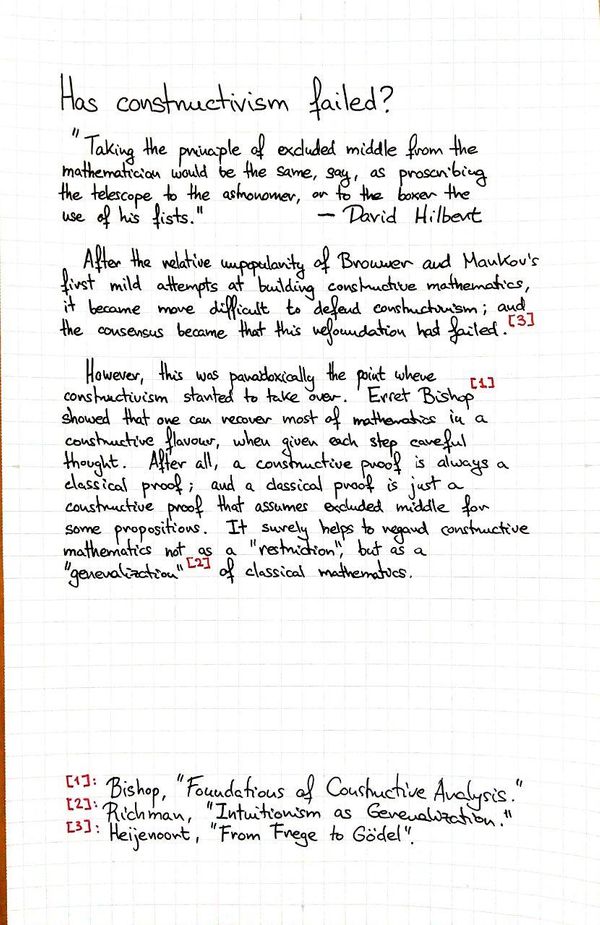 Has constructivism failed?
"Taking the principle of excluded middle from the
mathematician would be the same, say, as proscribing
the telescope to the astronomer, or to the boxer the
use of his fists." — David Hilbert
After the relative unpopularity of Brouwer and Markov's
first mild attempts at building constructive mathematics,
it became more difficult to defend constructivism; and
the consensus became that this refoundation had failed.[3]
However, this was paradoxically the point where
constructivism started to take over. Erret Bishop[1]
showed that one can recover most of mathematics in a
constructive flavour, when given each step careful
thought. After all, a constructive proof is always a
classical proof; and a classical proof is just a
constructive proof that assumes excluded middle for
some propositions. It surely helps to regard constructive
mathematics not as a "restriction", but as a
"generalization"[2] of classical mathematics.
[1]: Bishop, "Foundations of Constructive Analysis."
[2]: Richman, "Intuitionism as Generalization."
[3]: Heijenoort, "From Frege to Gödel".